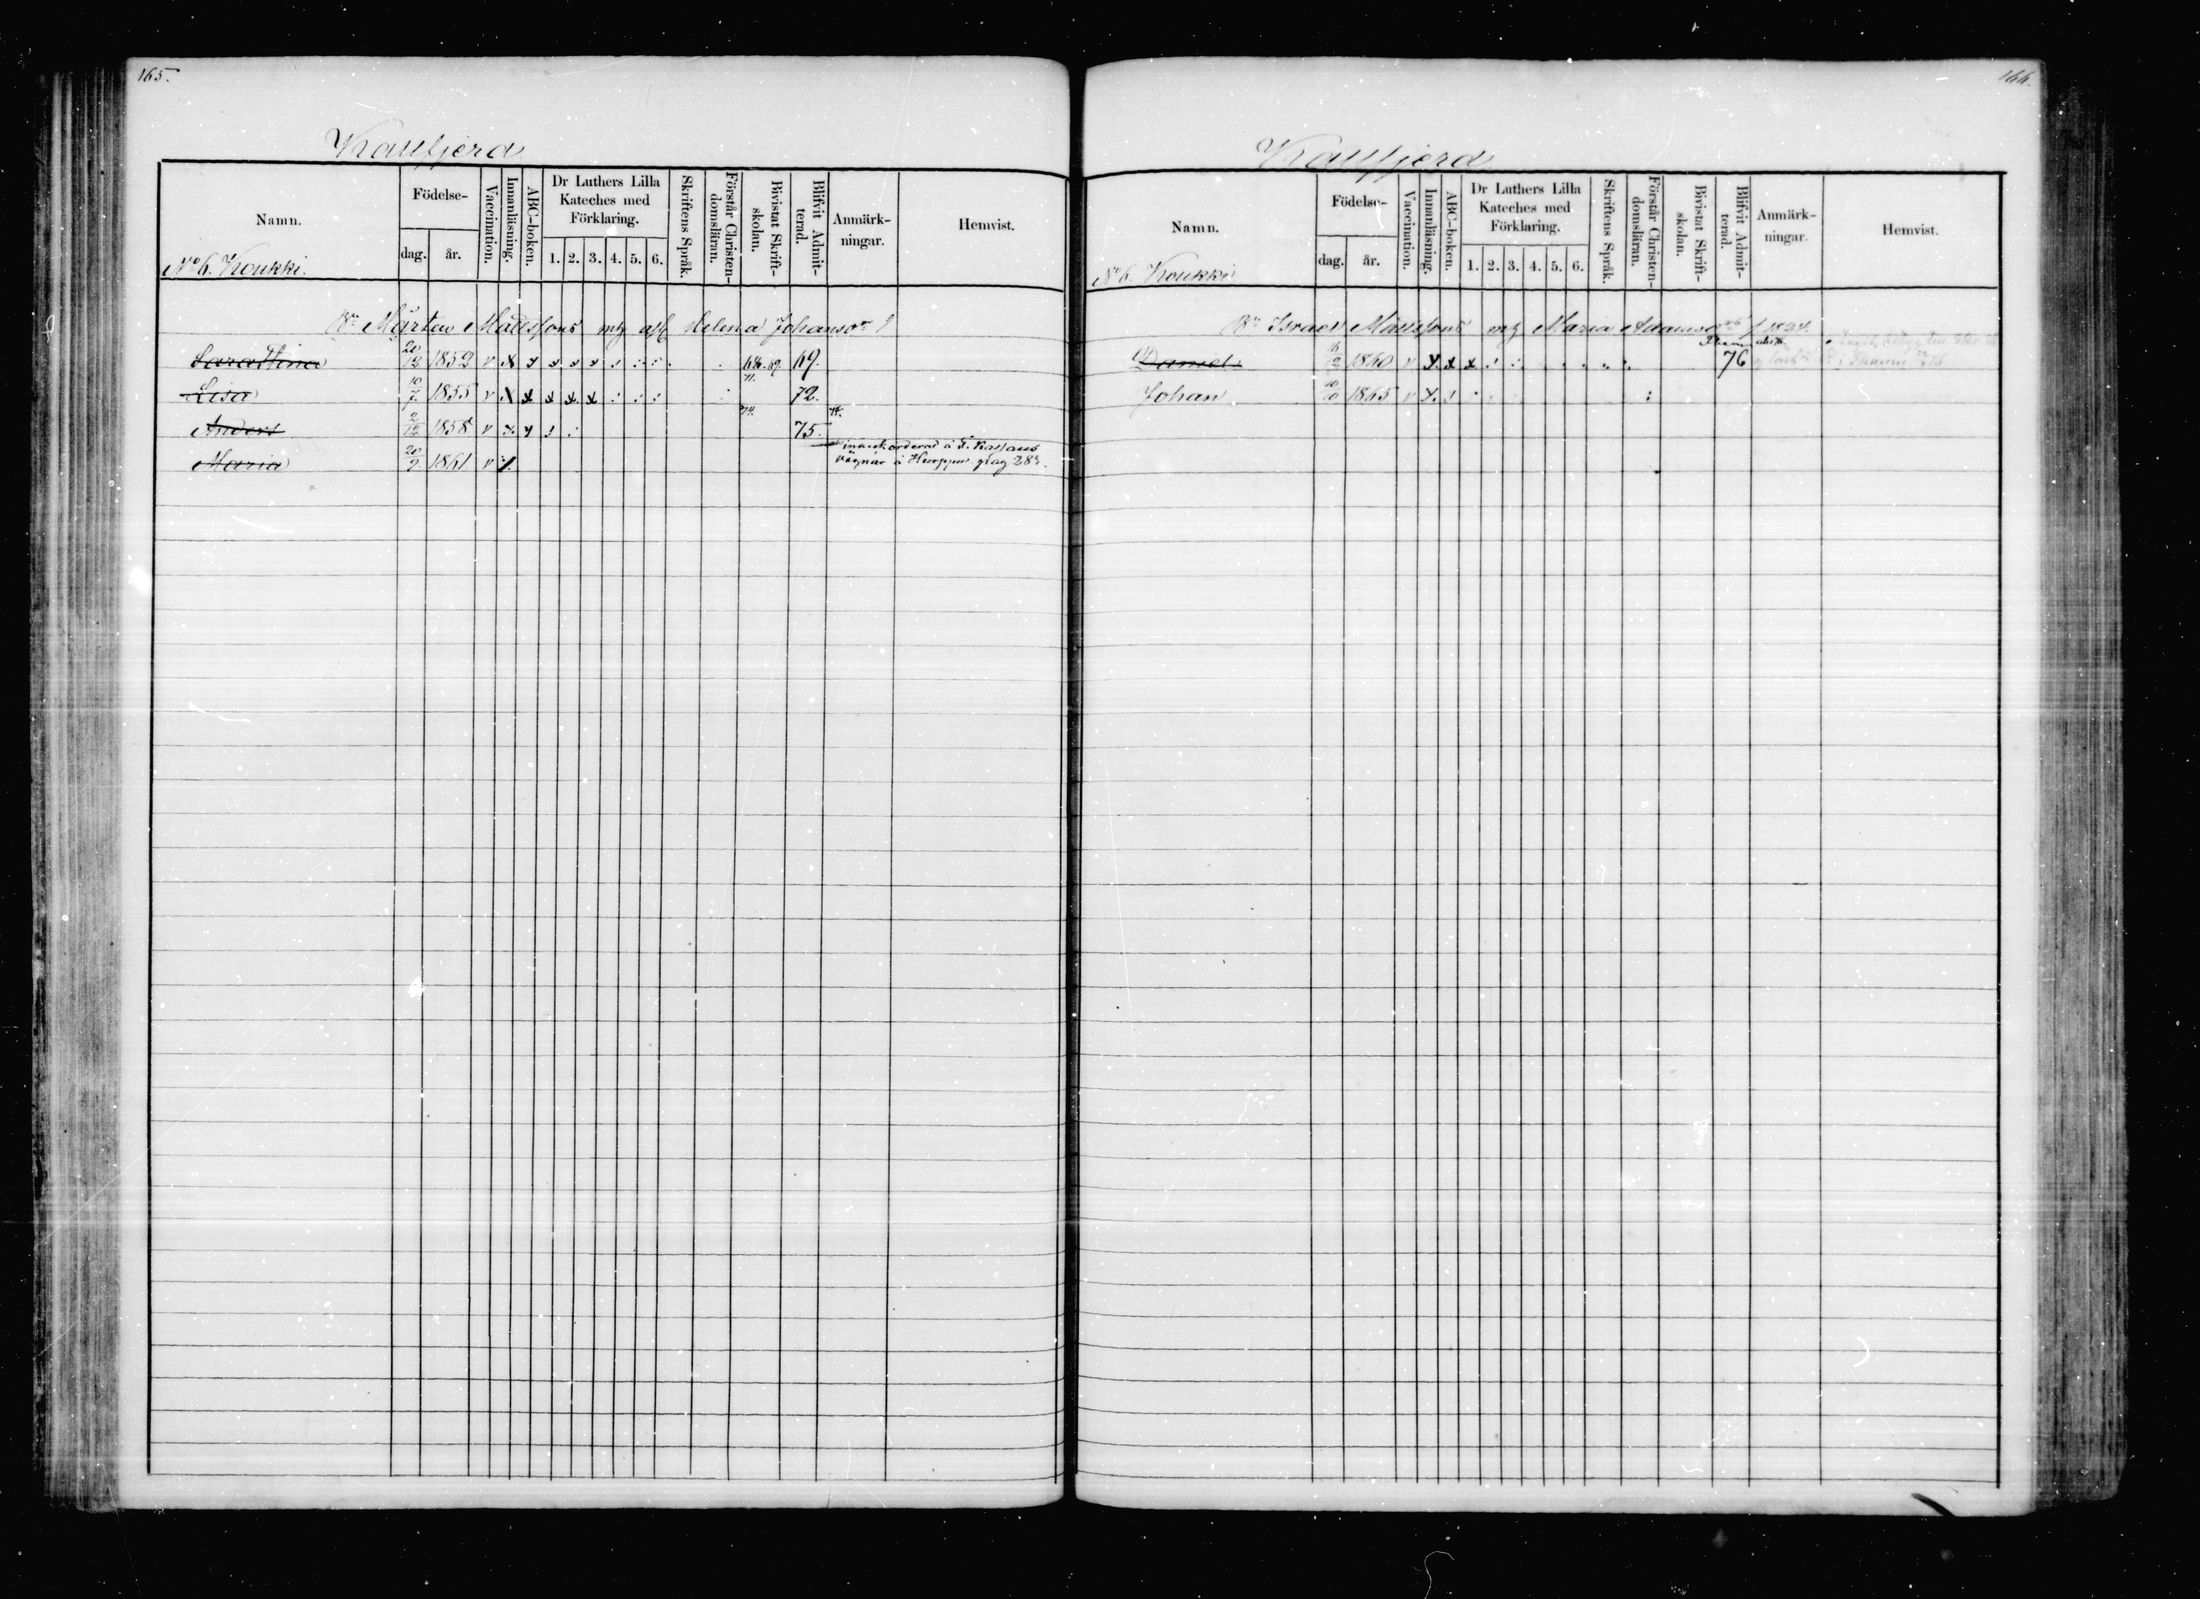 165.
Kallfjerd
Namn.
Födelse-
dag. år.
Vaccination.
Innanläsning.
ABC-boken.
Dr Luthers Lilla
Kateches med
Förklaring.
1. 2. 3. 4. 5. 6.
Skriftens Språk.
Förstår Christen-
domsläran.
Bivistat Skrift-
skolan.
Blifvit Admit-
terad.
Anmärk-
ningar.
Hemvist.
No 6. Koukki.
Bn Mårten Mattssons Helena Johansdr
20/12 1852 v 69.
Lisa 10/7 1855 v 71. 72.
Anders 2/12 1858 v 74. 75.
Maria 20/9 1861 v
166.
Kallfjerd
Namn.
Födelse-
dag. år.
Vaccination.
Innanläsning.
ABC-boken.
Dr Luthers Lilla
Kateches med
Förklaring.
1. 2. 3. 4. 5. 6.
Skriftens Språk.
Förstår Christen-
domsläran.
Bivistat Skrift-
skolan.
Blifvit Admit-
terad.
Anmärk-
ningar.
Hemvist.
No 6. Koukki
Bn Israel Mattssons Maria Adamsdr
Daniel 1860 v 76
Johan 10/10 1865 v